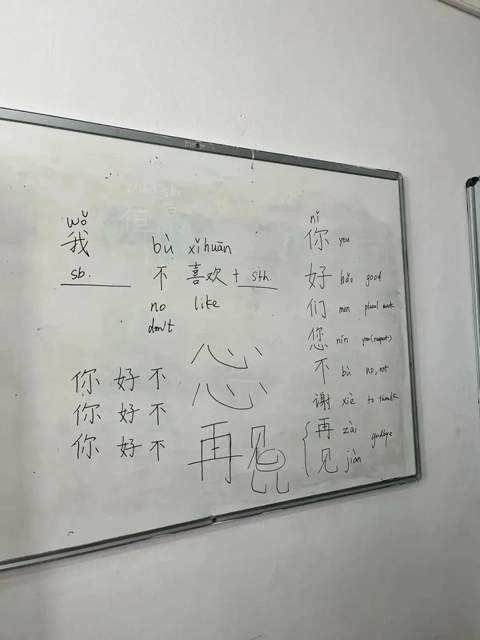 wǒ
我 bù xǐhuān
sb. 不 喜欢 + sth.
no like
don't
心
心
你 好 不
你 好 不
你 好 不
再 见
nǐ
你 you
好 hǎo good
们 men plural
您 nín you(respect)
不 bù no, not
谢 xiè to thank
再 zài
见 jiàn
goodbye